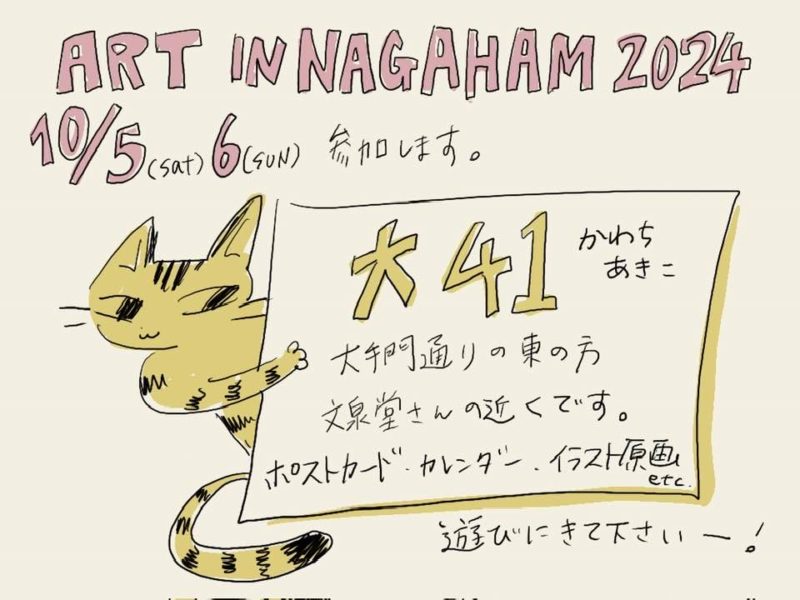 ART IN NAGAHAM 2024
10/5(sat) 6(SUN) 参加します。
大41 かわち
あきこ
大手門通りの東の方
文泉堂さんの近くです。
ポストカード.カレンダー.イラスト原画
etc.
遊びにきて下さいー!